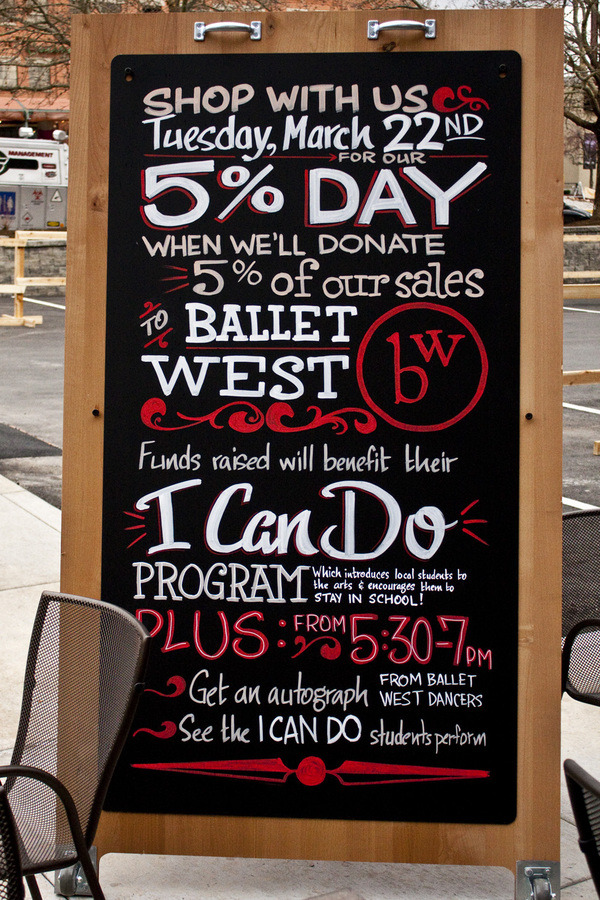 MANAGEMENT
SHOP WITH US
Tuesday, March 22ND
FOR OUR
5% DAY
WHEN WE'LL DONATE
5% of our sales
TO BALLET
WEST
bw
Funds raised will benefit their
I Can Do
PROGRAM
Which introduces local students to
the arts & encourages them to
STAY IN SCHOOL!
PLUS: FROM 5:30-7PM
Get an autograph FROM BALLET
WEST DANCERS
See the I CAN DO students perform